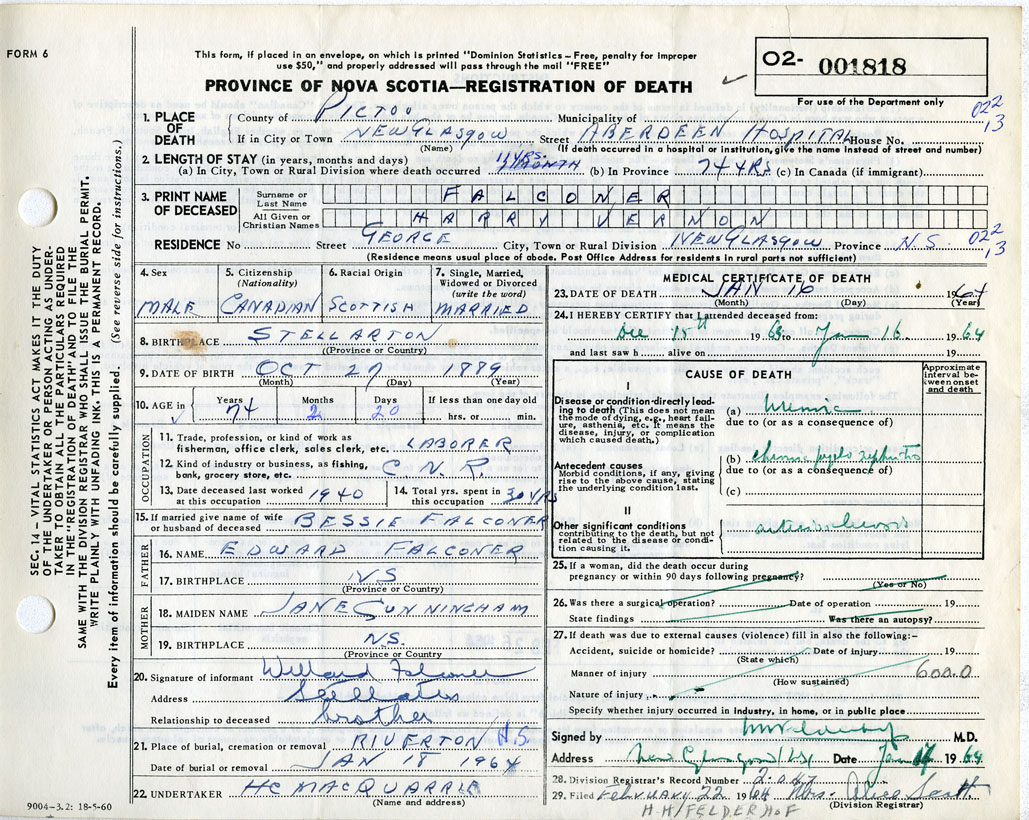 FORM 6
This form, if placed in an envelope, on which is printed "Dominion Statistics—Free, penalty for improper
use $50," and properly addressed will pass through the mail "FREE"
PROVINCE OF NOVA SCOTIA—REGISTRATION OF DEATH
O2- 001818
For use of the Department only
022
13
1. PLACE OF DEATH
County of PICTOU Municipality of
If in City or Town NEW GLASGOW Street ABERDEEN HOSPITAL House No.
(Name) (If death occurred in a hospital or institution, give the name instead of street and number)
2. LENGTH OF STAY (in years, months and days)
(a) In City, Town or Rural Division where death occurred (b) In Province 74 YRS (c) In Canada (if immigrant)
3. PRINT NAME OF DECEASED
Surname or Last Name FALCONER
All Given or Christian Names HARRY VERNON
RESIDENCE No Street GEORGE City, Town or Rural Division NEW GLASGOW Province N.S. 022
13
(Residence means usual place of abode. Post Office Address for residents in rural parts not sufficient)
4. Sex MALE
5. Citizenship (Nationality) CANADIAN
6. Racial Origin SCOTTISH
7. Single, Married, Widowed or Divorced (write the word) MARRIED
8. BIRTHPLACE STELLARTON
(Province or Country)
9. DATE OF BIRTH OCT 27 1889
(Month) (Day) (Year)
10. AGE in Years 74 Months 2 Days 20 If less than one day old
hrs. or min.
OCCUPATION
11. Trade, profession, or kind of work as
fisherman, office clerk, sales clerk, etc. LABORER
12. Kind of industry or business, as fishing,
bank, grocery store, etc. C.N.R.
13. Date deceased last worked at this occupation 1940
14. Total yrs. spent in this occupation 30 YRS
15. If married give name of wife
or husband of deceased BESSIE FALCONER
FATHER
16. NAME EDWARD FALCONER
17. BIRTHPLACE NS
(Province or Country)
MOTHER
18. MAIDEN NAME JANE CUNNINGHAM
19. BIRTHPLACE N.S.
(Province or Country)
20. Signature of informant Willard Falconer
Address
Relationship to deceased brother
21. Place of burial, cremation or removal RIVERTON N.S.
Date of burial or removal JAN 18 1964
22. UNDERTAKER HC MACQUARRIE
(Name and address)
9004-3.2: 18-5-60
MEDICAL CERTIFICATE OF DEATH
23. DATE OF DEATH JAN 16 1964
(Month) (Day) (Year)
24. I HEREBY CERTIFY that I attended deceased from:
Dec 15th 1963 to Jan 16 1964
and last saw h alive on 19
CAUSE OF DEATH
Approximate interval between onset and death
I
Disease or condition directly leading to death (This does not mean the mode of dying, e.g., heart failure, asthenia, etc. It means the disease, injury, or complication which caused death.)
(a) Uremia
due to (or as a consequence of)
Antecedent causes
Morbid conditions, if any, giving rise to the above cause, stating the underlying condition last.
(b) chronic pyelo nephritis
due to (or as a consequence of)
(c)
II
Other significant conditions
contributing to the death, but not related to the disease or condition causing it.
arteriosclerosis
25. If a woman, did the death occur during
pregnancy or within 90 days following pregnancy?
(Yes or No)
26. Was there a surgical operation? Date of operation 19
State findings Was there an autopsy?
27. If death was due to external causes (violence) fill in also the following:—
Accident, suicide or homicide? Date of injury 19
(State which)
Manner of injury 600.0
(How sustained)
Nature of injury
Specify whether injury occurred in Industry, in home, or in public place
Signed by M.D.
Address New Glasgow NS Date Jan 17 1964
28. Division Registrar's Record Number 2047
29. Filed February 22 1964 Mrs. Alice Scott
(Division Registrar)
H.H/FELDERHOF
SEC. 14 – VITAL STATISTICS ACT MAKES IT THE DUTY
OF THE UNDERTAKER OR PERSON ACTING AS UNDER-
TAKER TO OBTAIN ALL THE PARTICULARS REQUIRED
IN THE "REGISTRATION OF DEATH" AND TO FILE THE
SAME WITH THE DIVISION REGISTRAR WHO SHALL ISSUE THE BURIAL PERMIT.
WRITE PLAINLY WITH UNFADING INK. THIS IS A PERMANENT RECORD.
Every item of information should be carefully supplied. (See reverse side for instructions.)